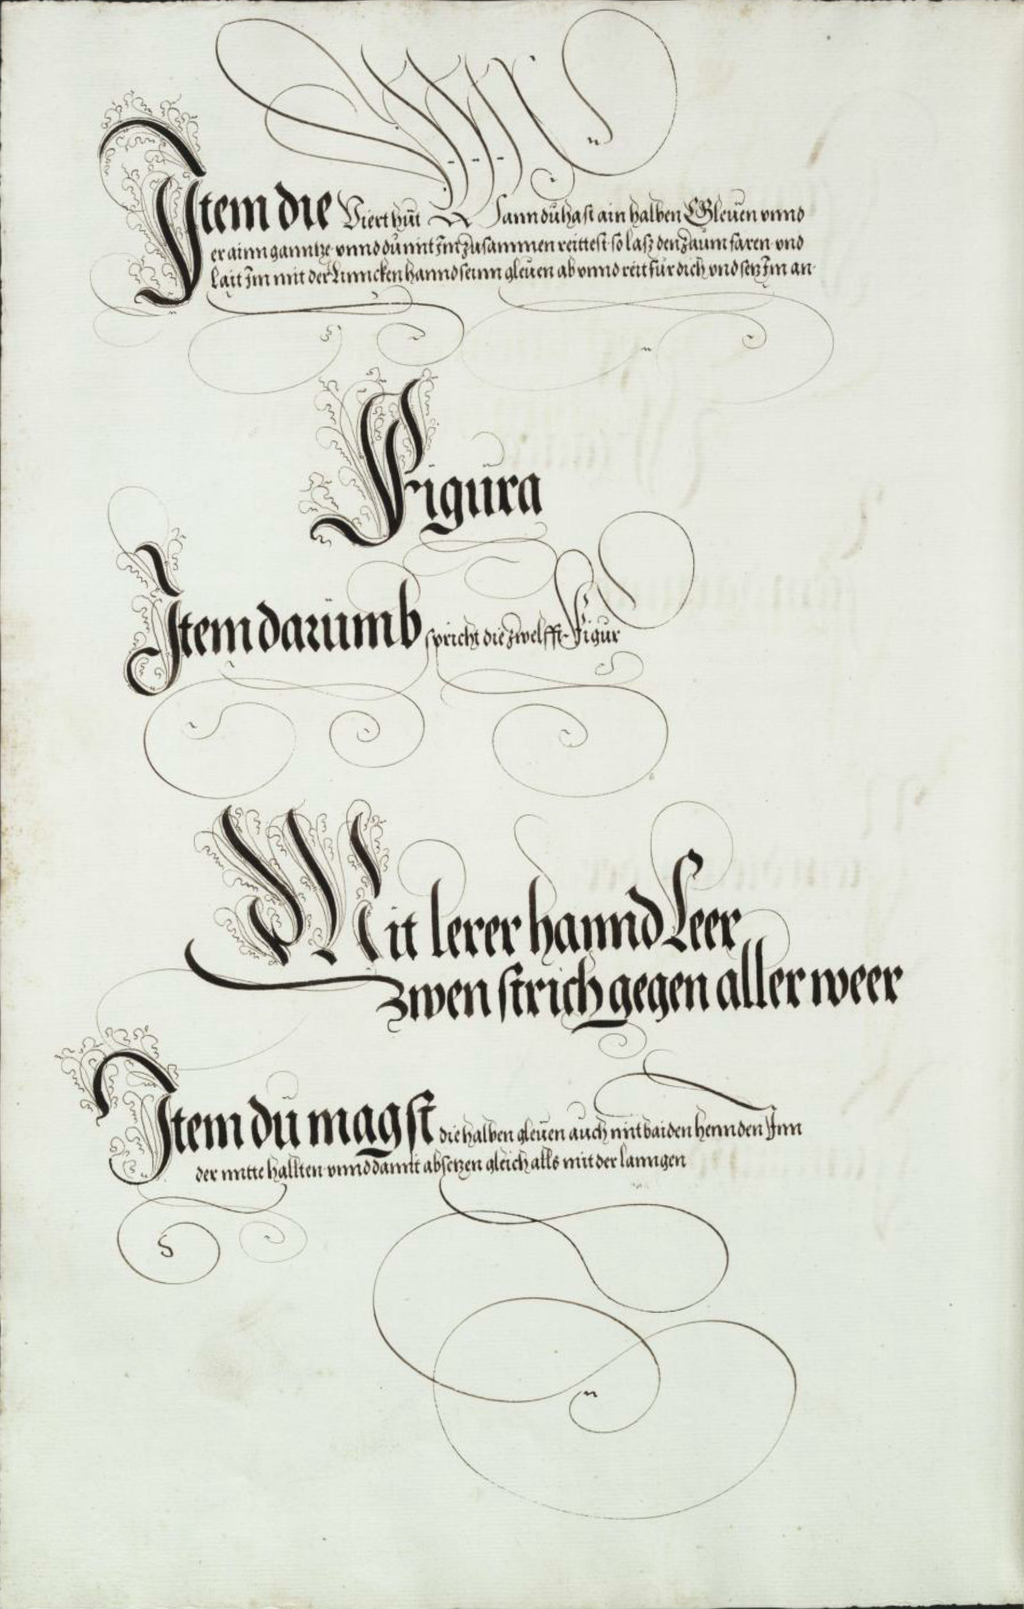 Item die Viert hüt Wann dü hast ain halben Gleven vnnd
er ainn ganntze vnnd du mit Im zusammen reittest so lasz den zaum faren vnd
Lait Im mit der Linncken hannd seinn gleven ab vnnd reit für dich vnd setz Im an
Figüra
Item darümb spricht die zwelfft Figur
Mit lerer hannd Leer
zwen strich gegen aller weer
Item dü magst die halben gleven auch mit baiden hennden Inn
der mitte hallten vnnd damit absetzen gleich alls mit der lanngen